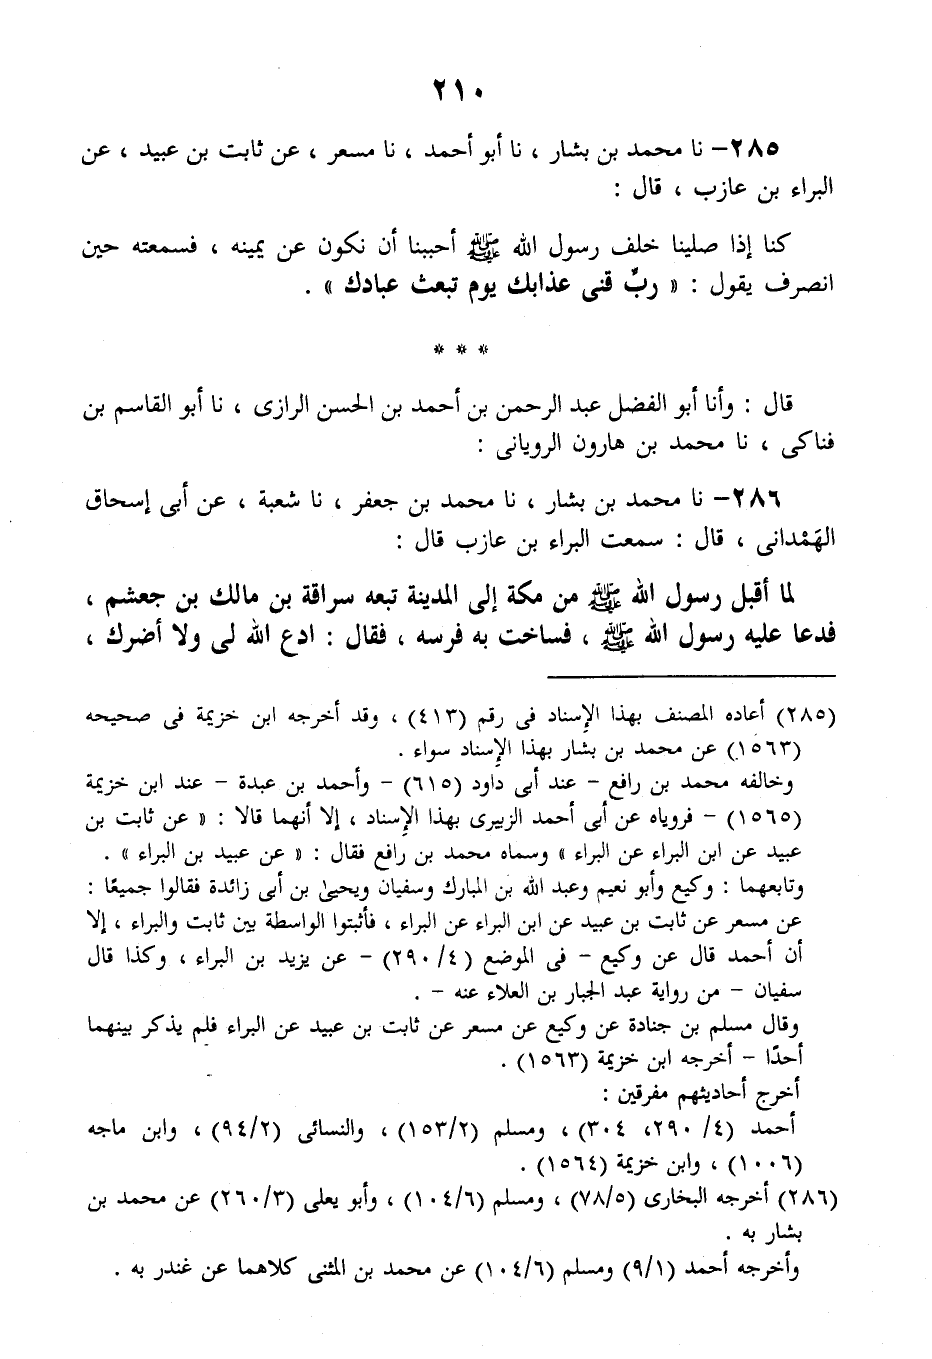 ٢١٠
٢٨٥– نا محمد بن بشار ، نا أبو أحمد ، نا مسعر ، عن ثابت بن عبيد ، عن
البراء بن عازب ، قال :
كنا إذا صلينا خلف رسول الله ﷺ أحببنا أن نكون عن يمينه ، فسمعته حين
انصرف يقول : « ربِّ قنى عذابك يوم تبعث عبادك » .
* * *
قال : وأنا أبو الفضل عبد الرحمن بن أحمد بن الحسن الرازى ، نا أبو القاسم بن
فناكى ، نا محمد بن هارون الرويانى :
٢٨٦– نا محمد بن بشار ، نا محمد بن جعفر ، نا شعبة ، عن أبى إسحاق
الهَمْدانى ، قال : سمعت البراء بن عازب قال :
لما أقبل رسول الله ﷺ من مكة إلى المدينة تبعه سراقة بن مالك بن جعشم ،
فدعا عليه رسول الله ﷺ ، فساخت به فرسه ، فقال : ادع الله لى ولا أضرك ،
(٢٨٥) أعاده المصنف بهذا الإسناد فى رقم (٤١٣) ، وقد أخرجه ابن خزيمة فى صحيحه
(١٥٦٣) عن محمد بن بشار بهذا الإسناد سواء .
وخالفه محمد بن رافع – عند أبى داود (٦١٥) – وأحمد بن عبدة – عند ابن خزيمة
(١٥٦٥) – فروياه عن أبى أحمد الزبيرى بهذا الإسناد ، إلا أنهما قالا : « عن ثابت بن
عبيد عن ابن البراء عن البراء » وسماه محمد بن رافع فقال : « عن عبيد بن البراء » .
وتابعهما : وكيع وأبو نعيم وعبد الله بن المبارك وسفيان ويحيىٰ بن أبى زائدة فقالوا جميعًا :
عن مسعر عن ثابت بن عبيد عن ابن البراء عن البراء ، فأثبتوا الواسطة بين ثابت والبراء ، إلا
أن أحمد قال عن وكيع – فى الموضع (٤/ ٢٩٠) – عن يزيد بن البراء ، وكذا قال
سفيان – من رواية عبد الجبار بن العلاء عنه – .
وقال مسلم بن جنادة عن وكيع عن مسعر عن ثابت بن عبيد عن البراء فلم يذكر بينهما
أحدًا – أخرجه ابن خزيمة (١٥٦٣) .
أخرج أحاديثهم مفرقين :
أحمد (٤/ ٢٩٠، ٣٠٤) ، ومسلم (١٥٣/٢) ، والنسائى (٩٤/٢) ، وابن ماجه
(١٠٠٦) ، وابن خزيمة (١٥٦٤) .
(٢٨٦) أخرجه البخارى (٧٨/٥) ، ومسلم (١٠٤/٦) ، وأبو يعلى (٢٦٠/٣) عن محمد بن
بشار به .
وأخرجه أحمد (٩/١) ومسلم (١٠٤/٦) عن محمد بن المثنى كلاهما عن غندر به .